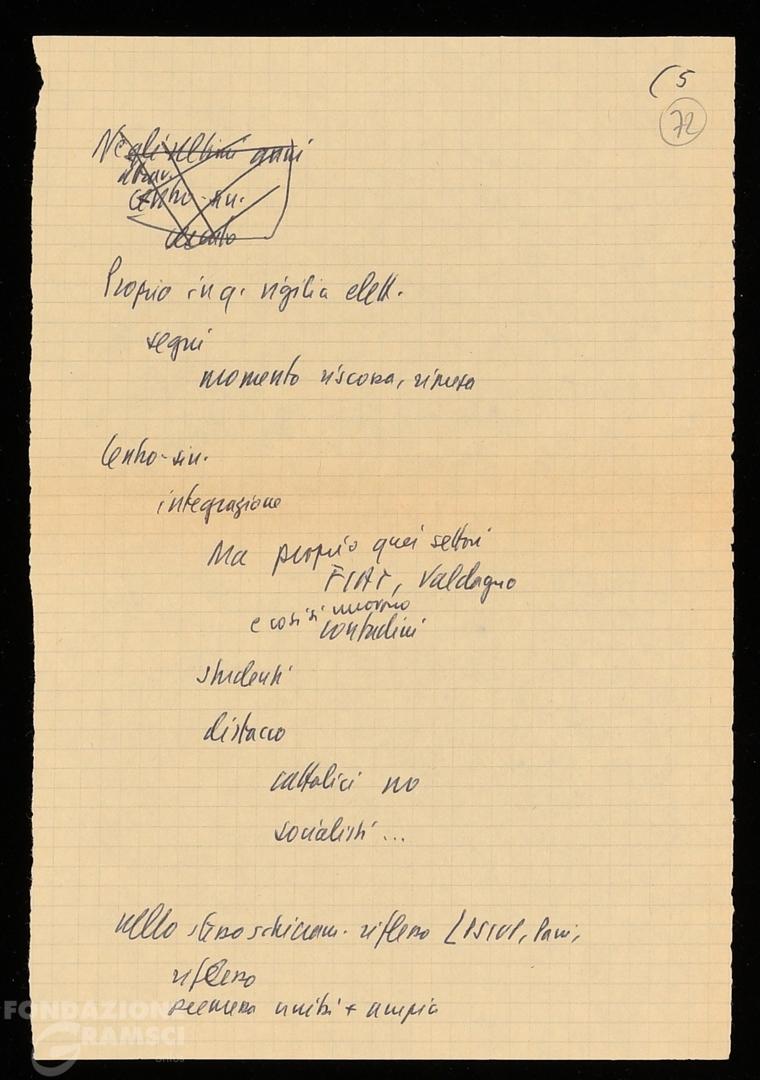 (5
72
Negli ultimi anni
centro-sin.
Proprio in q. vigilia elett.
segni
momento riscossa, ripresa
Centro-sin.
integrazione
Ma proprio quei settori
FIAT, Valdagno
e così si muovono
contadini
studenti
distacco
cattolici no
socialisti...
nello stesso schieram. riflesso LPSIUP, Parri,
riflesso
premessa unità + ampia
FONDAZIONE
GRAMSCI
onlus